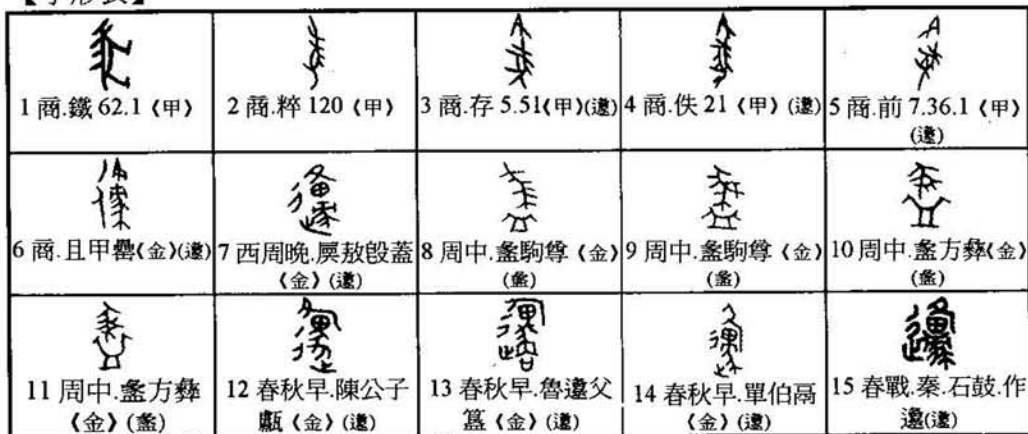 1 商.鐵 62.1《甲》
2 商.粹 120《甲》
3 商.存 5.51《甲》(邍)
4 商.佚 21《甲》(邍)
5 商.前 7.36.1《甲》
(邍)
6 商.且甲罍《金》(邍)
7 西周晚.敖𣪘蓋
《金》(邍)
8 周中.盠駒尊《金》
(盠)
9 周中.盠駒尊《金》
(盠)
10 周中.盠方彝《金》
(盠)
11 周中.盠方彝
《金》(盠)
12 春秋早.陳公子
甗《金》(邍)
13 春秋早.魯邍父
簋《金》(邍)
14 春秋早.單伯鬲
《金》(邍)
15 春戰.秦.石鼓.作
邍(邍)